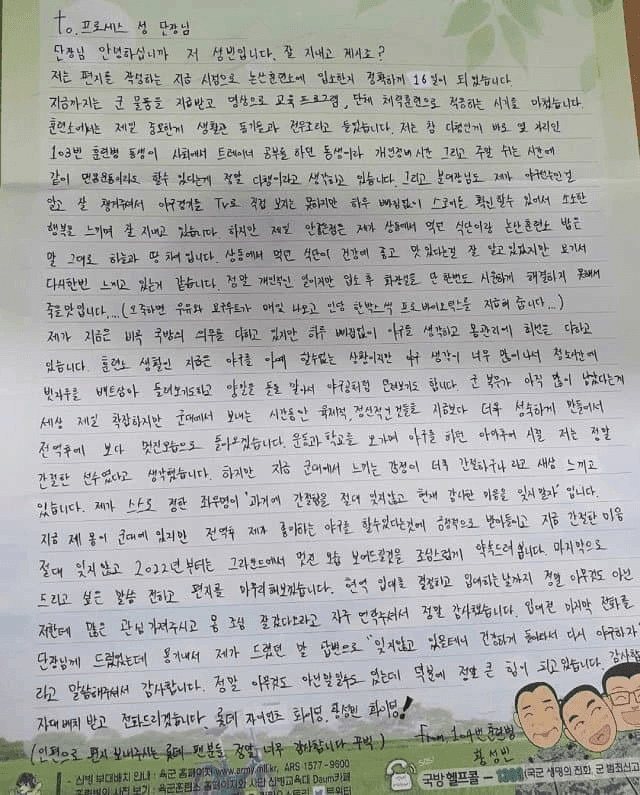 to. 프로세스 성 단장님
단장님 안녕하십니까 저 성빈입니다. 잘 지내고 계시죠?
저는 편지를 작성하는 지금 시점으로 논산훈련소에 입소한지 정확하게 16일이 되었습니다.
지금까지는 군 물품을 지급받고 영상으로 교육 프로그램, 단체 체력훈련으로 적응하는 시기를 마쳤습니다.
훈련소에서는 제일 중요한게 생활관 동기들과 전우조라고 들었습니다. 저는 참 다행인게 바로 옆 자리인
103번 훈련병 동생이 사회에서 트레이너 공부를 하던 동생이라 개인정비 시간 그리고 주말 쉬는 시간에
같이 맨몸운동이라도 할수 있다는게 정말 다행이라고 생각하고 있습니다. 그리고 분대장님도 제가 야구선수인걸
알고 잘 챙겨주셔서 야구경기를 TV로 직접 보지는 못하지만 하루 빠짐없이 스코어를 확인할수 있어서 소소한
행복을 느끼며 잘 지내고 있습니다. 하지만 제일 안좋은점은 제가 상동에서 먹던 식단이랑 논산훈련소 밥은
말 그대로 하늘과 땅 차이입니다. 상동에서 먹던 식단이 건강에 좋고 맛있다는걸 잘 알고있었지만 여기서
다시한번 느끼고 있는거 같습니다. 정말 개인적인 일이지만 입소 후 화장실을 단 한번도 시원하게 해결하지 못해서
죽을맛입니다....(오죽하면 우유와 요구르트가 매일 나오고 인당 한박스씩 프로바이오틱스를 지급해 줍니다...)
제가 지금은 비록 국방의 의무를 다하고 있지만 하루 빠짐없이 야구를 생각하고 몸관리에 최선을 다하고
있습니다. 훈련소 생활인 지금은 야구를 아예 할수없는 상황이지만 야구 생각이 너무 많이나서 청소시간에
빗자루를 배트삼아 돌려보기도하고 양말을 돌돌 말아서 야구공처럼 던져보기도 합니다. 군 복무가 아직 많이 남았다는게
세상 제일 막막하지만 군대에서 보내는 시간동안 육체적, 정신적인것들로 지금보다 더욱 성숙하게 만들어서
전역후에 보다 멋진모습으로 돌아오겠습니다. 운동과 학교를 오가며 야구를 하던 아마추어 시절 저는 정말
간절한 선수였다고 생각했습니다. 하지만 지금 군대에서 느끼는 감정이 더욱 간절하구나 라고 새삼 느끼고
있습니다. 제가 스스로 정한 좌우명이 '과거에 간절함을 절대 잊지않고 현재 감사한 마음을 잊지말자' 입니다.
지금 제 몸이 군대에 있지만 전역후 제가 좋아하는 야구를 할수있다는것에 긍정적으로 받아들이고 지금 간절한 마음
절대 잊지않고 2022년부터는 그라운드에서 멋진 모습 보여드릴것을 조심스럽게 약속드려 봅니다. 마지막으로
드리고 싶은 말씀 전하고 편지를 마무리해보겠습니다. 현역 입대를 결정하고 입대하는날까지 정말 아무것도 아닌
저한테 많은 관심 가져주시고 몸 조심 잘갔다오라고 자주 연락주셔서 정말 감사했습니다. 입대전 마지막 전화를
단장님께 드렸었는데 용기내서 제가 드렸던 말 답변으로 "잊지않고 있을테니 건강하게 돌아와서 다시 야구하자"
라고 말씀해주셔서 감사합니다. 정말 아무것도 아닌말일수도 있는데 덕분에 정말 큰 힘이 되고있습니다. 감사합
자대배치 받고 전화드리겠습니다. 롯데 자이언츠 화이팅, 황성빈 화이팅!
(인편으로 편지 보내주시는 롯데 팬분들 정말 너무 감사합니다 꾸벅)
From 104번 훈련병
황성빈
- 신병 부대배치 안내 : 육군 홈페이지 www.army.mil.kr, ARS 1577-9600
훈련병의 사진 보기 : 육군훈련소 홈페이지와 사단 신병교육대 Daum카페
트위터
국방헬프콜 - 1303 (국군 생명의 전화, 군 범죄신고